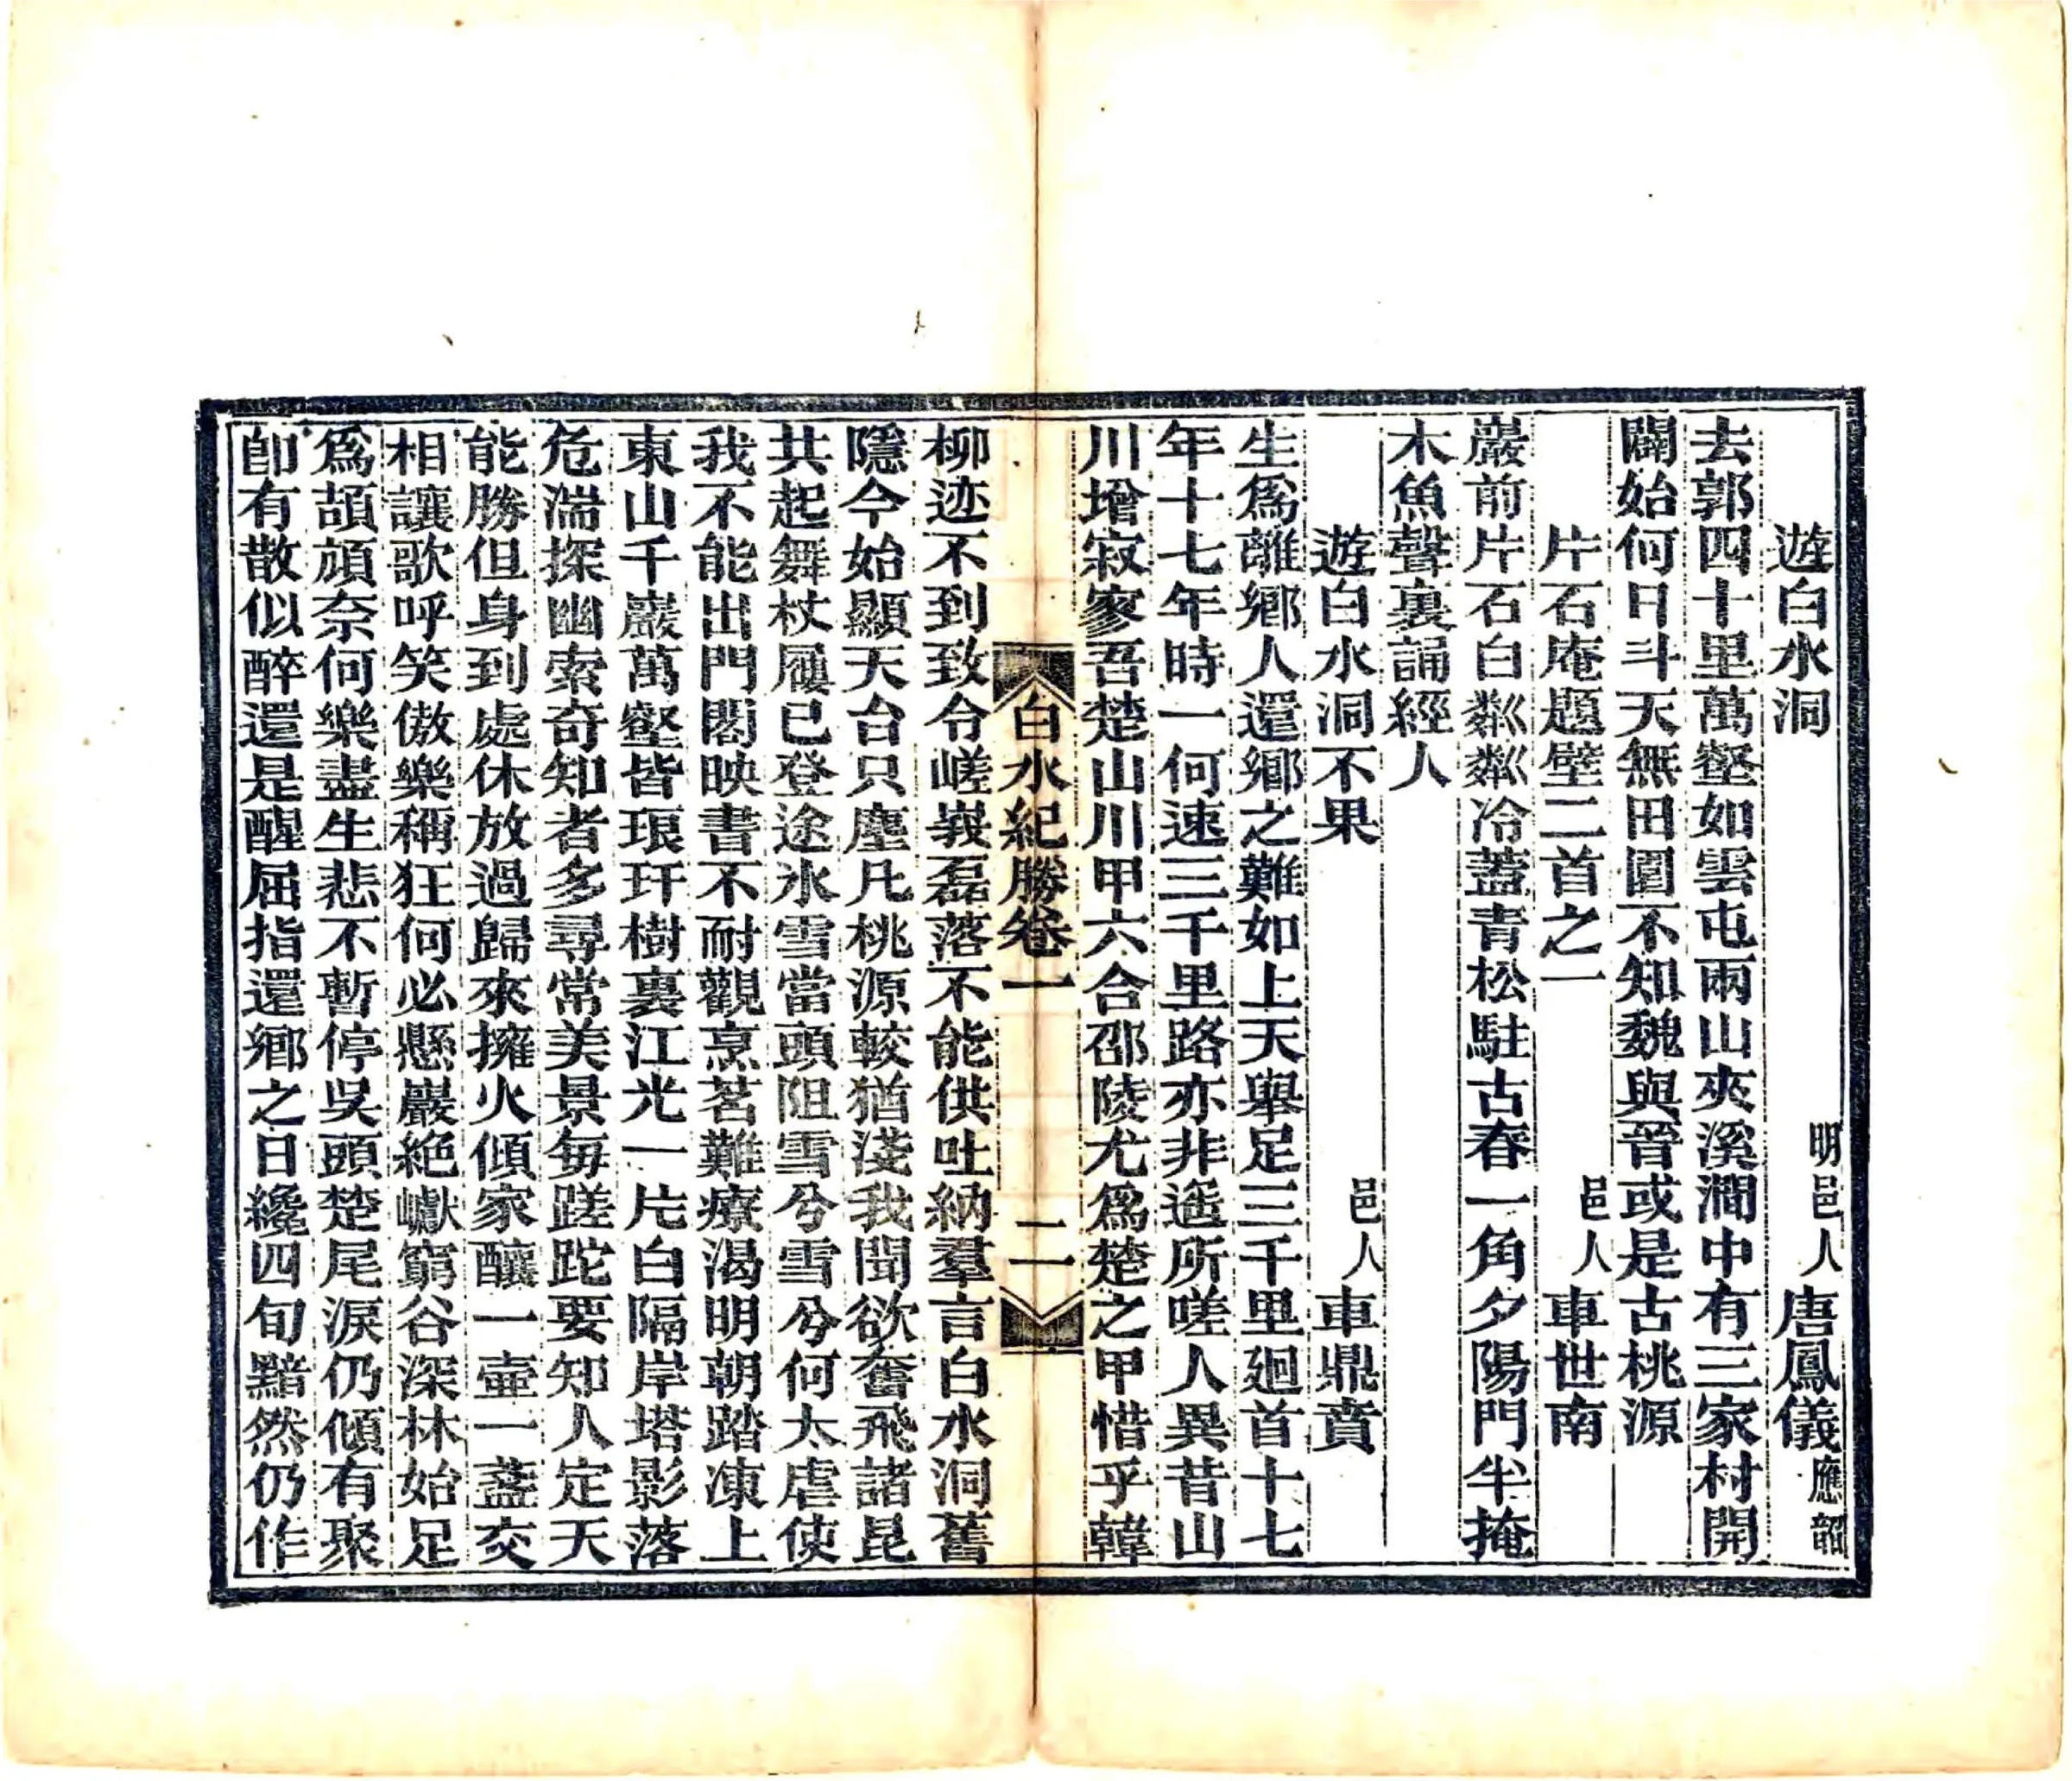 遊白水洞　明邑人唐鳳儀應韶
去郭四十里萬壑如雲屯兩山夾溪澗中有三家村開
闢始何日斗天無田園不知魏與晉或是古桃源
片石庵題壁二首之一　邑人車世南
巖前片石白粼粼冷蓋青松駐古春一角夕陽門半掩
木魚聲裏誦經人
遊白水洞不果　邑人車鼎賁
生爲離鄉人還鄉之難如上天舉足三千里廻首十七
年十七年時一何速三千里路亦非遙所嗟人異昔山
川增寂寥吾楚山川甲六合邵陵尤爲楚之甲惜乎韓
白水紀勝卷一　二
柳迹不到致令嵯峩磊落不能供吐納羣言白水洞舊
隱今始顯天台只塵凡桃源較猶淺我聞欲奮飛諸昆
共起舞杖屨已登途氷雪當頭阻雪兮雪兮何太虐使
我不能出門閣映書不耐觀烹茗難療渴明朝踏凍上
東山千巖萬壑皆琅玕樹裏江光一片白隔岸塔影落
危湍探幽索奇知者多尋常美景每蹉跎要知人定天
能勝但身到處休放過歸來擁火傾家釀一壷一盞交
相讓歌呼笑傲樂稱狂何必懸巖絶巘窮谷深林始足
爲頡頏奈何樂盡生悲不暫停吳頭楚尾淚仍傾有聚
卽有散似醉還是醒屈指還鄉之日纔四旬黯然仍作